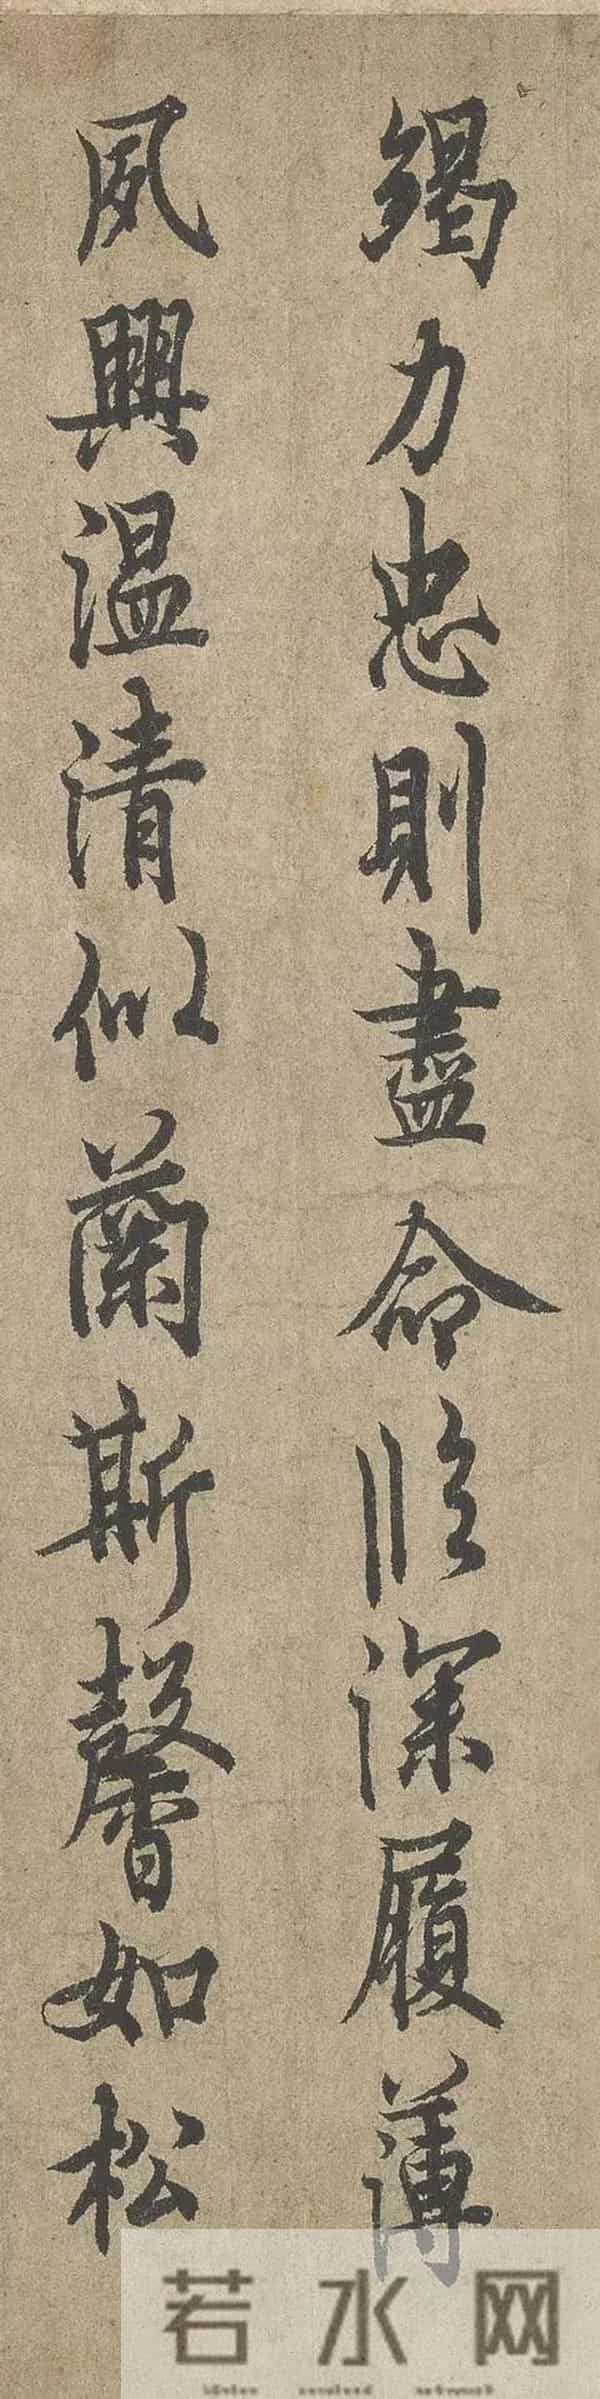 竭力忠則盡命臨深履薄
夙興温清似蘭斯馨如松
若水网